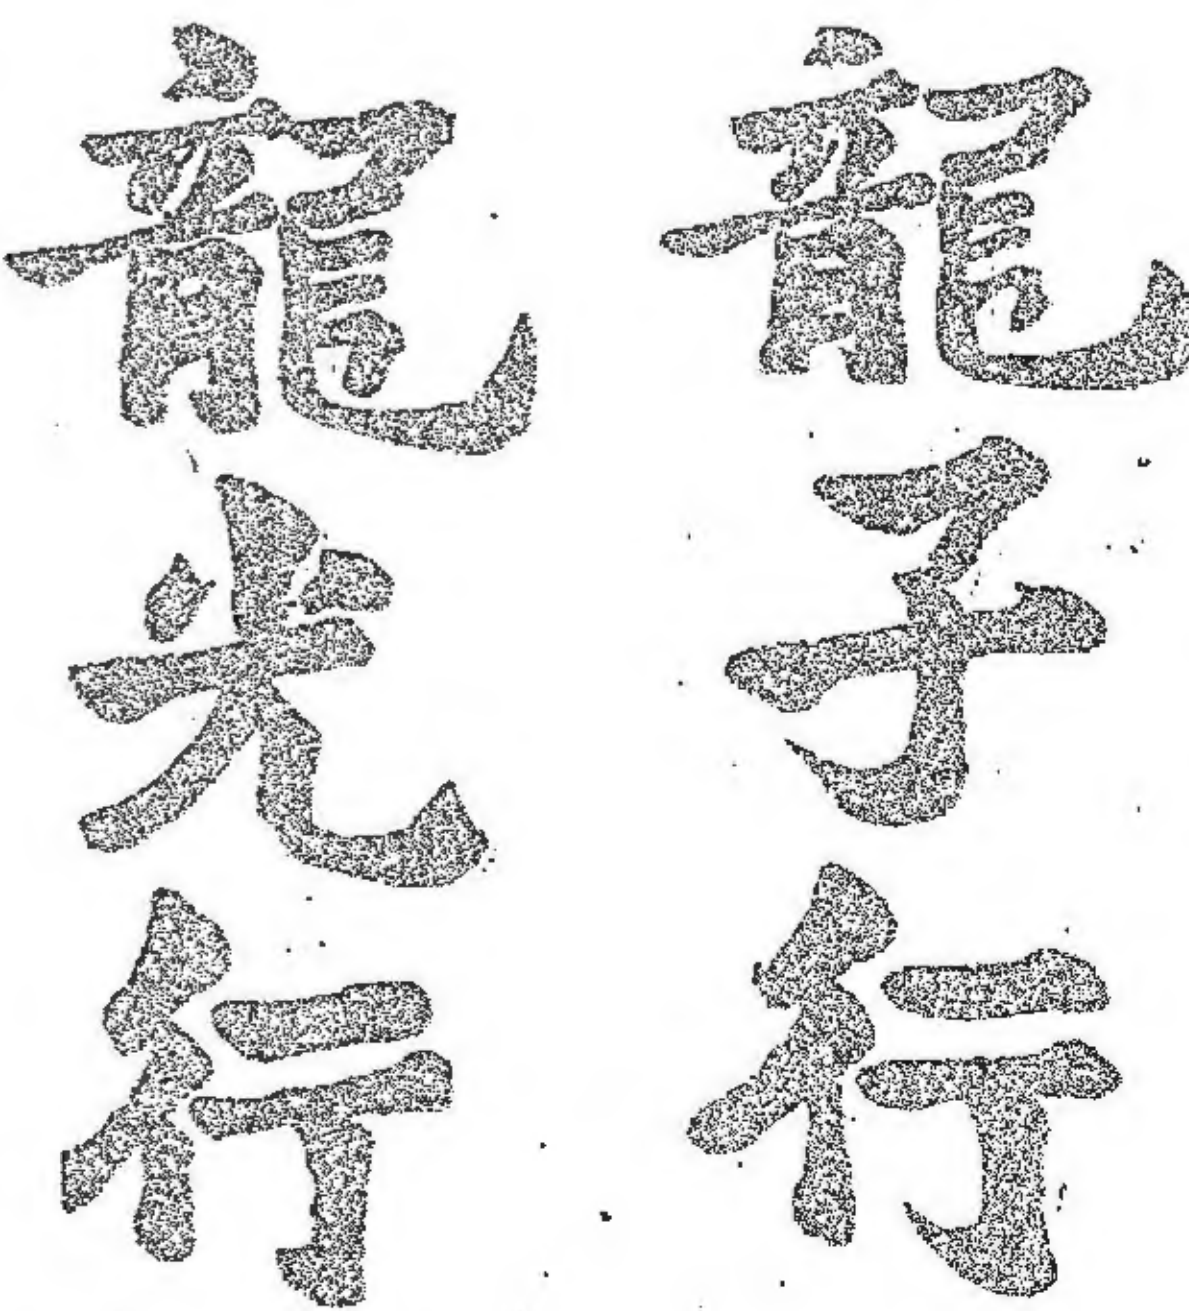 龍子行
龍光行